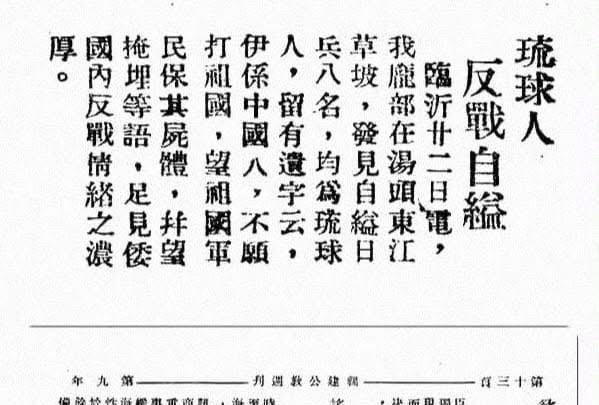 琉球人
反戰自縊
臨沂廿二日電，
我龐部在湯頭東江
草坡，發見自縊日
兵八名，均爲琉球
人，留有遺字云，
伊係中國人，不願
打祖國，望祖國軍
民保其屍體，幷望
掩埋等語，足見倭
國內反戰情緒之濃
厚。
第十三頁
福建公教週刊
第九年